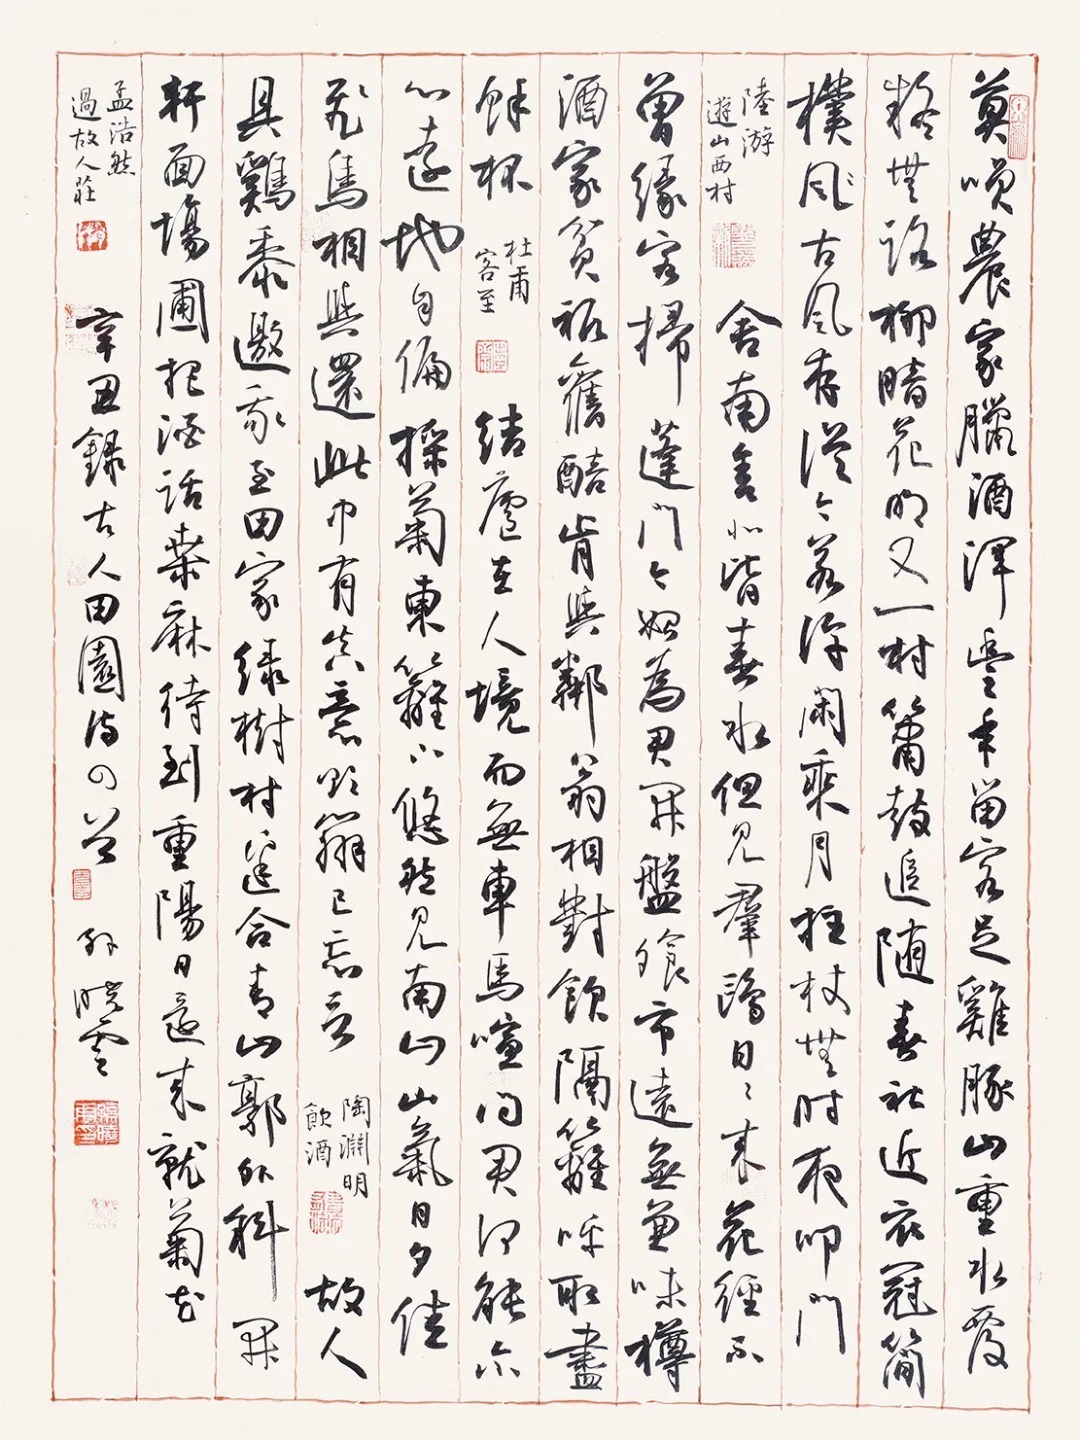 莫咲農家臘酒渾豐年留客足雞豚山重水復
疑無路柳暗花明又一村簫鼓追随春社近衣冠簡
樸風古風存從今若許閑乘月拄杖無時夜叩門
陸游
遊山西村
舍南舍北皆春水但見羣鷗日日來花徑不
曾緣客掃蓬門今始為君開盤飧市遠無兼味樽
酒家貧衹舊醅肯與鄰翁相對飲隔籬呼取盡
餘杯
杜甫
客至
結廬在人境而無車馬喧問君何能尔
心遠地自偏採菊東籬下悠然見南山山氣日夕佳
飛鳥相與還此中有真意欲辯已忘言
陶淵明
飲酒
故人
具鷄黍邀我至田家綠樹村邊合青山郭外斜開
軒面場圃把酒話桑麻待到重陽日還來就菊花
孟浩然
過故人莊
辛丑錄古人田園詩四首
孫曉雲